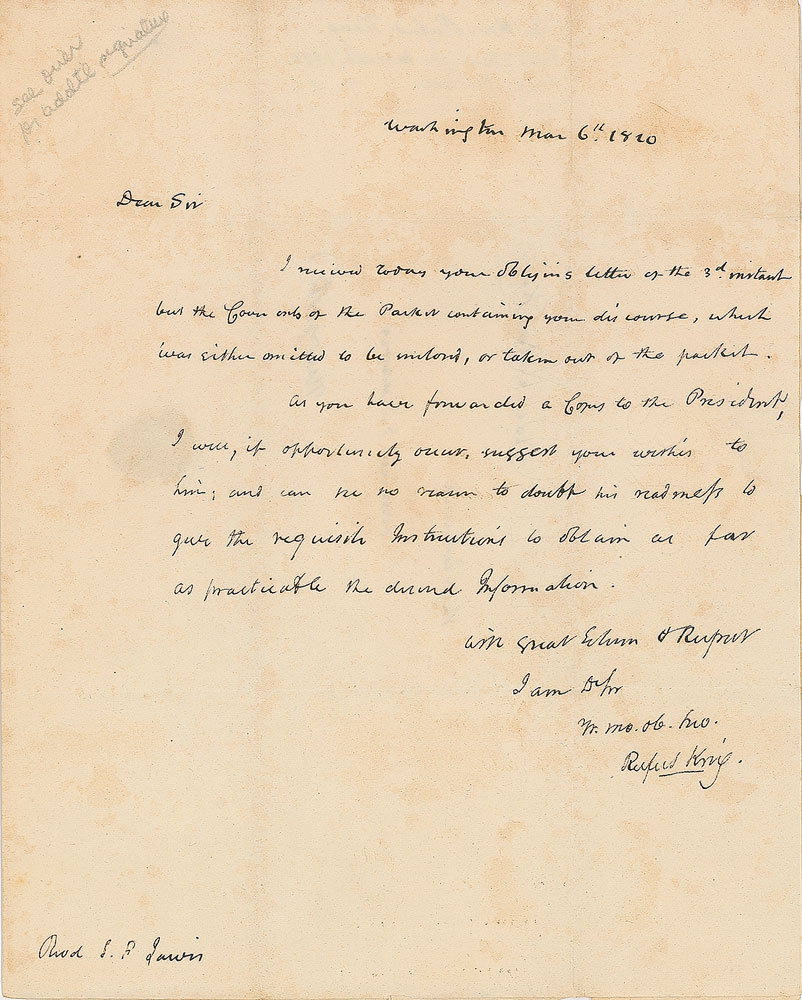 see over
for addt'l signature
Washington Mar 6th. 1820
Dear Sir
I received today your obliging letter of the 3d. instant
but the Cover only of the Packet containing your discourse, which
was either omitted to be inclosed, or taken out of the packet.
As you have forwarded a Copy to the President,
I will, if opportunity occur, suggest your wishes to
him; and can see no reason to doubt his readiness to
give the requisite Instructions to obtain as far
as practicable the desired Information.
with great Esteem & Respect
I am D Sir
Yr. mo. ob. Ser.
Rufus King.
Revd S. F Jarvis